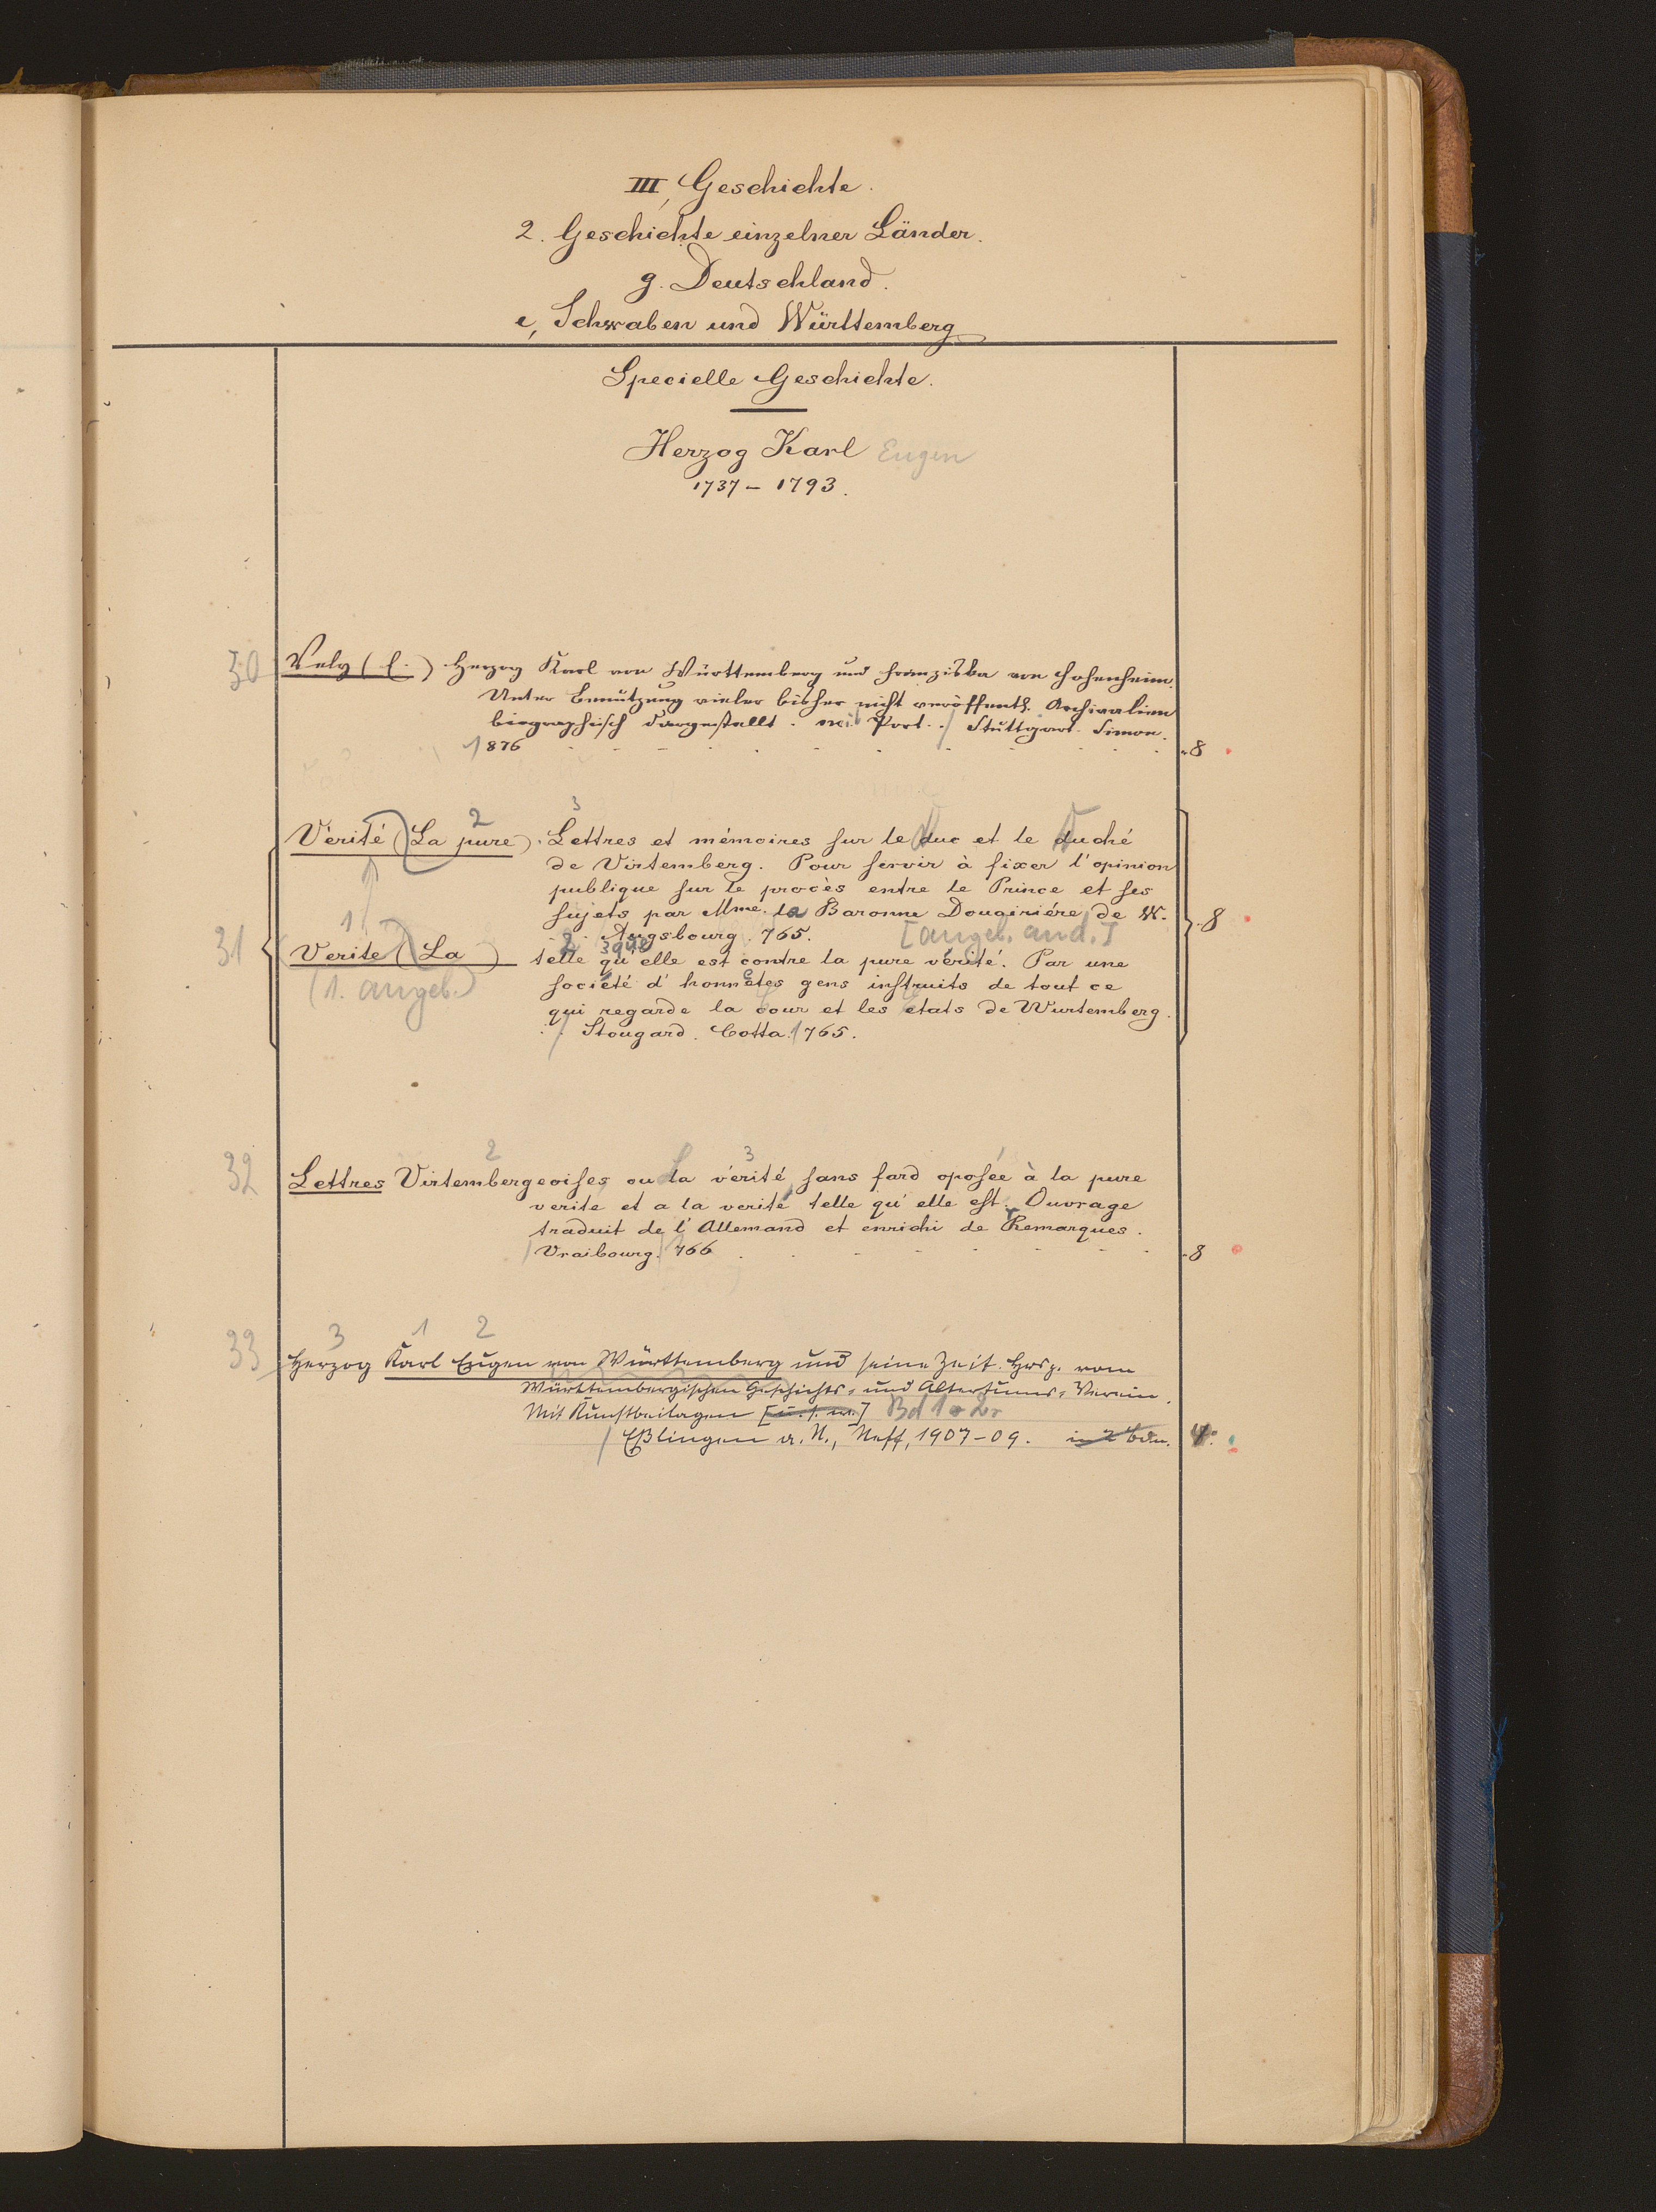 III, Geschichte.
2. Geschichte einzelner Länder.
g. Deutschland.
e, Schwaben und Württemberg
Specielle Geschichte.
Herzog Karl Eugen
1737 – 1793.
30 Vely (E.) Herzog Karl von Württemberg und Franziska von Hohenheim.
Unter Benützung vieler bisher nicht veröffentl. Archivalien
biographisch dargestellt. mit Port. / Stuttgart. Simon.
1876 8
2 3
Vérité (La pure). Lettres et mémoires sur le duc et le duché
de Virtemberg. Pour servir à fixer l'opinion
publique sur le procès entre le Prince et ses
sujets par Mme. la Baronne Douairiére de W.
Augsbourg. 765. [angeb. and.] 8
1 2 3
31 Verite (La) telle qu'elle est contre la pure vérité. Par une
(1. angeb.) société d'honnetes gens instruits de tout ce
qui regarde la cour et les etats de Wurtemberg.
/ Stougard. Cotta. 1765.
2 3
32 Lettres Virtembergeoises ou la vérité sans fard oposée à la pure
verite et a la verité telle qu'elle est. Ouvrage
traduit de l'Allemand et enrichi de Remarques.
/ Vraibourg. 1766 8
3 1 2
33 Herzog Karl Eugen von Württemberg und seine Zeit. Hrsg. vom
Württembergischen Geschichts- und Altertums-Verein.
Mit Kunstbeilagen [u. s. w.] Bd 1. 2.
/ Eßlingen a. N., Neff, 1907–09. in 2 Bdn. 4.